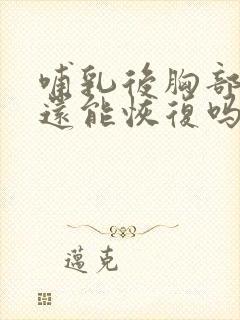 哺乳後胸部
還能恢復吗
邁克